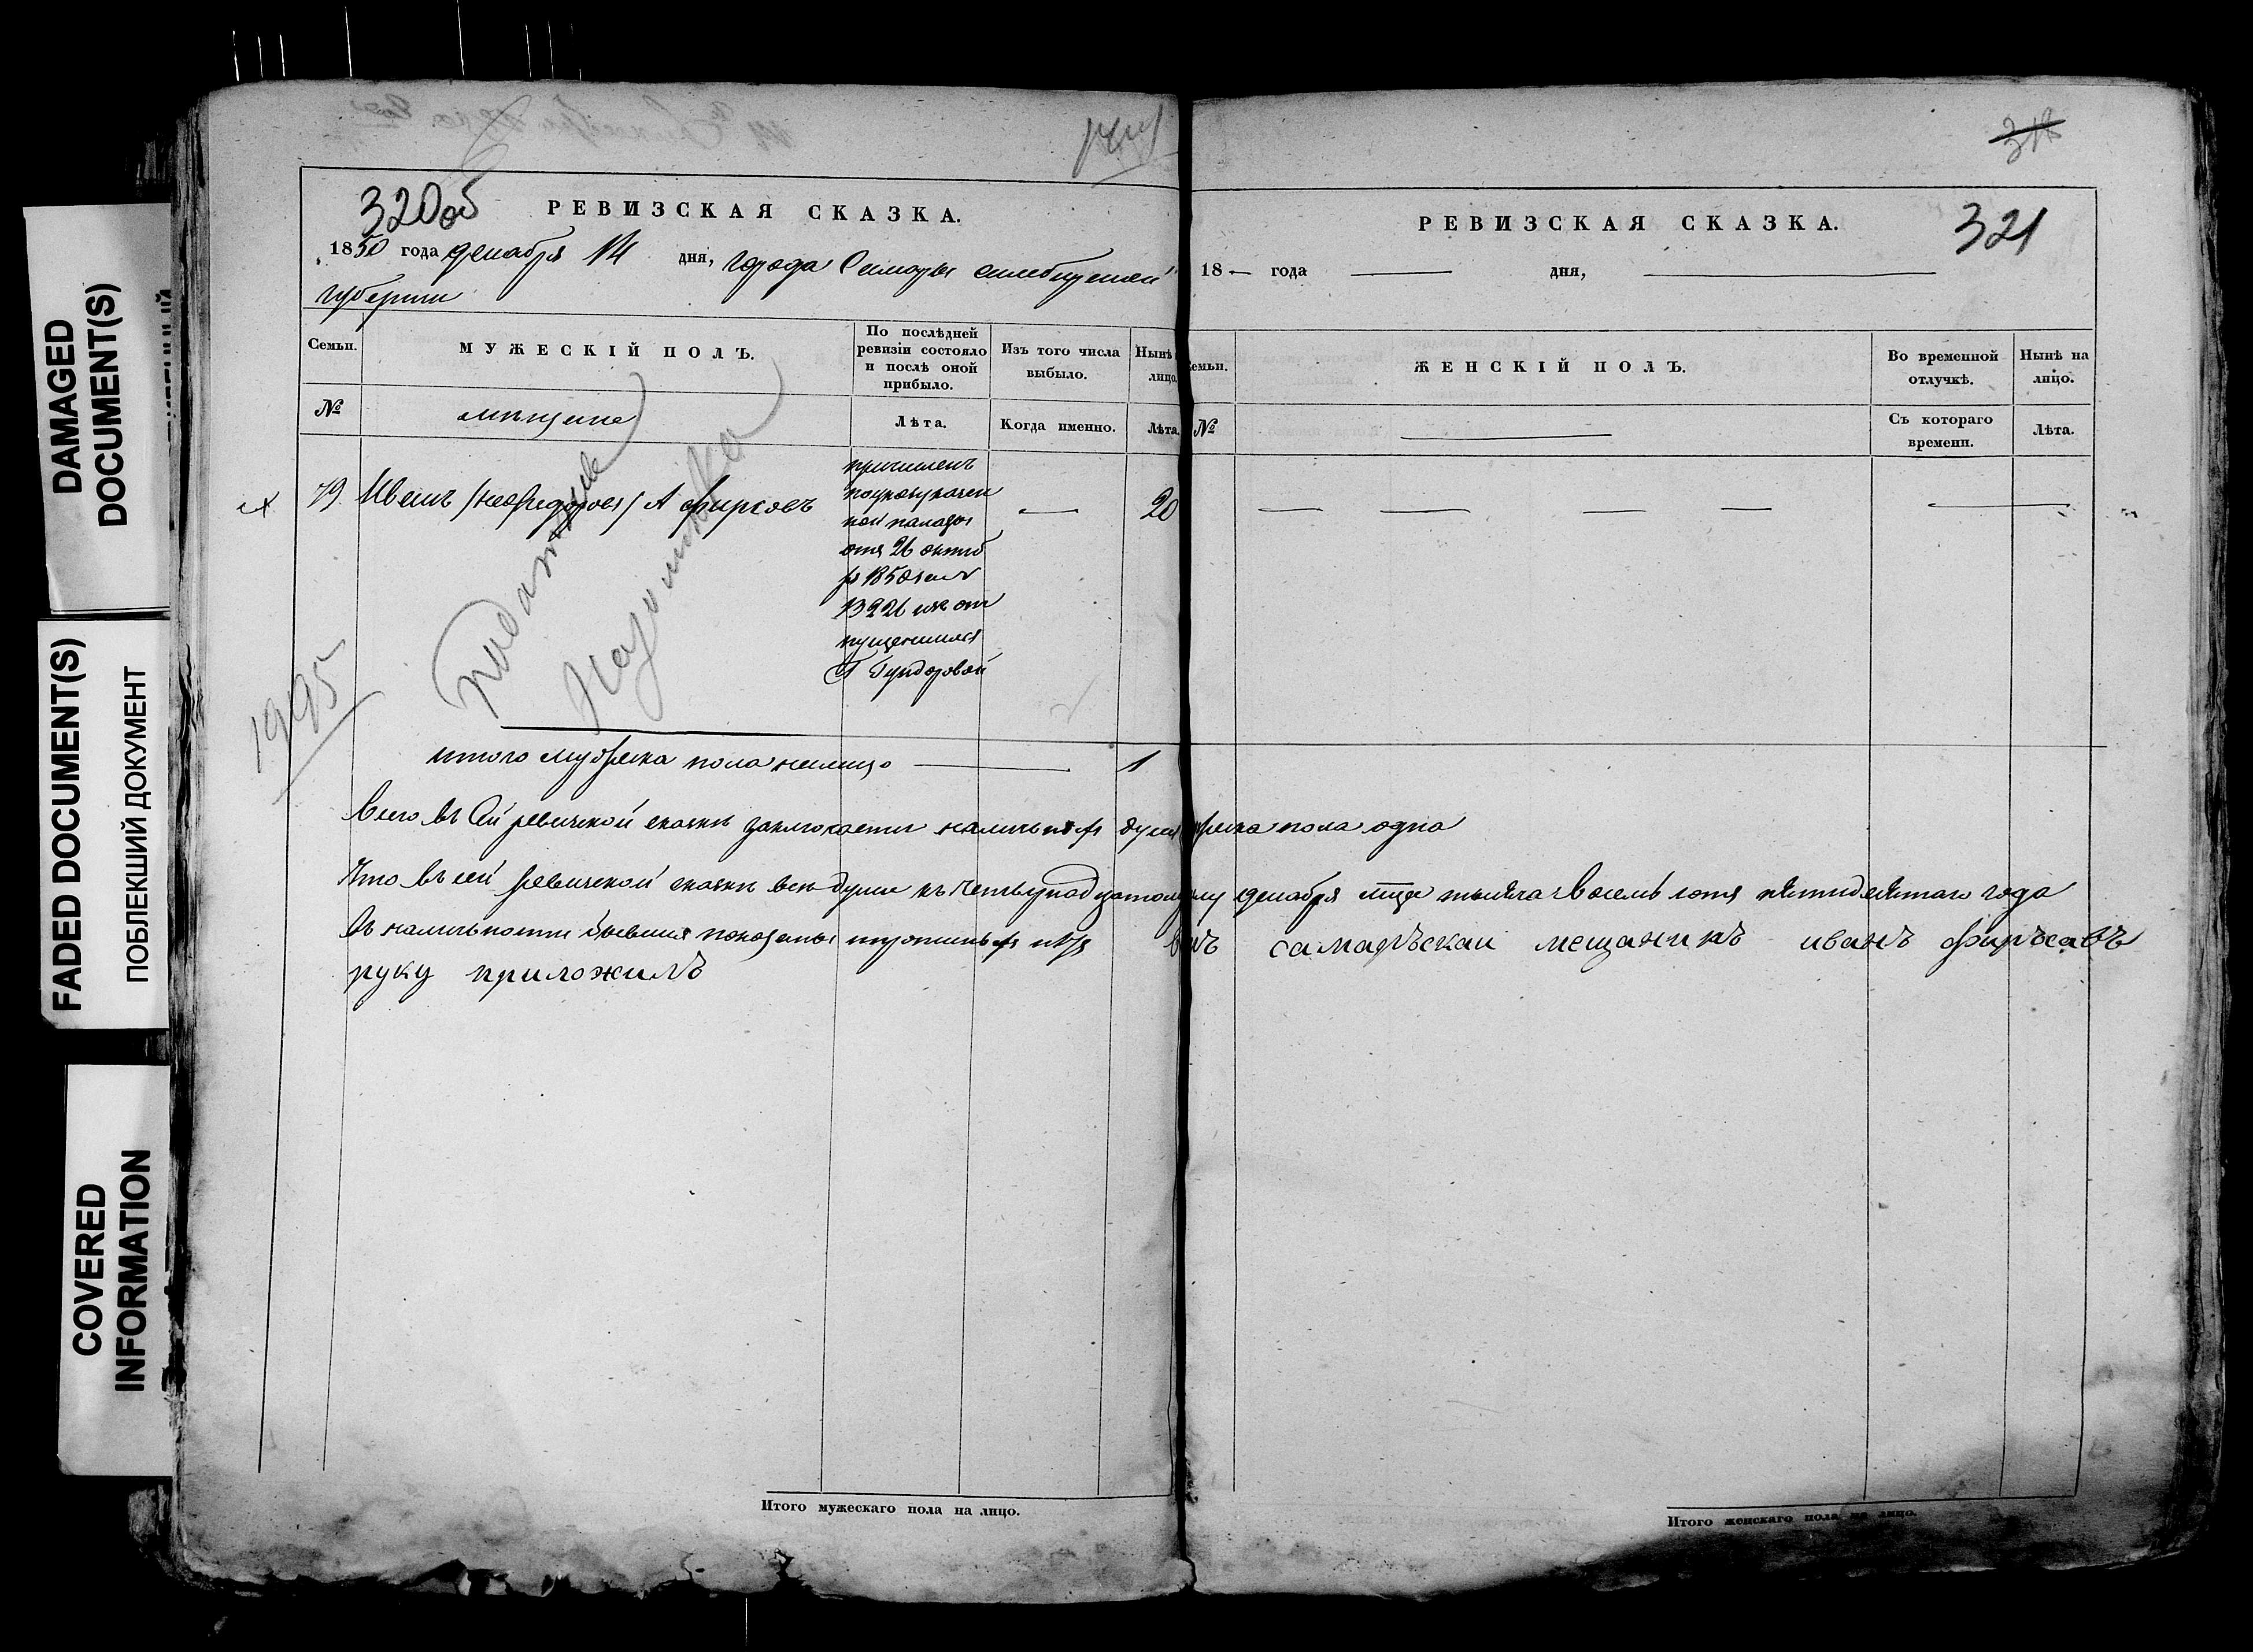 DAMAGED
DOCUMENT(S)
FADED DOCUMENT(S)
ПОБЛЕКШИЙ ДОКУМЕНТ
COVERED
INFORMATION
320об
РЕВИЗСКАЯ СКАЗКА.
1850 года декабря 14 дня, города Самары симбирской
губернии
Семьи.
МУЖЕСКІЙ ПОЛЪ.
По послѣдней
ревизіи состояло
и послѣ оной
прибыло.
Изъ того числа
выбыло.
Нынѣ
лицо.
№
мещане
Лѣта.
Когда именно.
Лѣта.
79 Иванъ Фирсовъ
причисленъ
по указу казен
ной палаты
отъ 26 октяб
13226 изъ от
пущенныхъ
Г Гундоровой
—
20
1995
итого мужеска пола налицо — 1
Всего въ сей ревизской сказкѣ заключается душъ мужеска пола одна
Что въ сей ревизской сказкѣ все души къ четырнадцатому декабря тысяча восемь сотъ пятидесятаго года
въ наличности бывшия показаны
самаръскаи мещанинъ иванъ фиръсавъ
руку приложилъ
Итого мужескаго пола на лицо.
318
РЕВИЗСКАЯ СКАЗКА.
321
18— года — дня, —
Семьи.
ЖЕНСКІЙ ПОЛЪ.
Во временной
отлучкѣ.
Нынѣ на
лицо.
№
Съ котораго
времени.
Лѣта.
Итого женскаго пола на лицо.